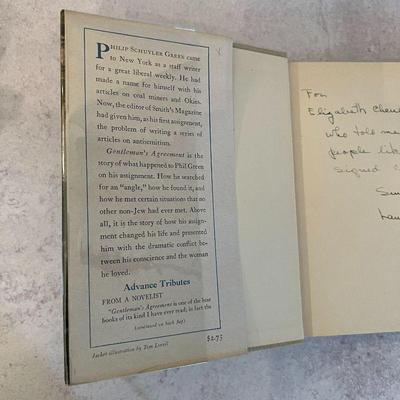 PHILIP SCHUYLER GREEN came
to New York as a staff writer
for a great liberal weekly. He had
made a name for himself with his
articles on coal miners and Okies.
Now, the editor of Smith's Magazine
had given him, as his first assignment,
the problem of writing a series of
articles on antisemitism.
Gentleman's Agreement is the
story of what happened to Phil Green
on his assignment. How he searched
for an "angle," how he found it, and
how he met certain situations that no
other non-Jew had ever met. Above
all, it is the story of how his assign-
ment changed his life and presented
him with the dramatic conflict be-
tween his conscience and the woman
he loved.
Advance Tributes
FROM A NOVELIST
"Gentleman's Agreement is one of the best
books of its kind I have ever read; in fact the
(continued on back flap)
$2.75
Jacket illustration by Tom
For
Elizabeth
who told me
people
signed